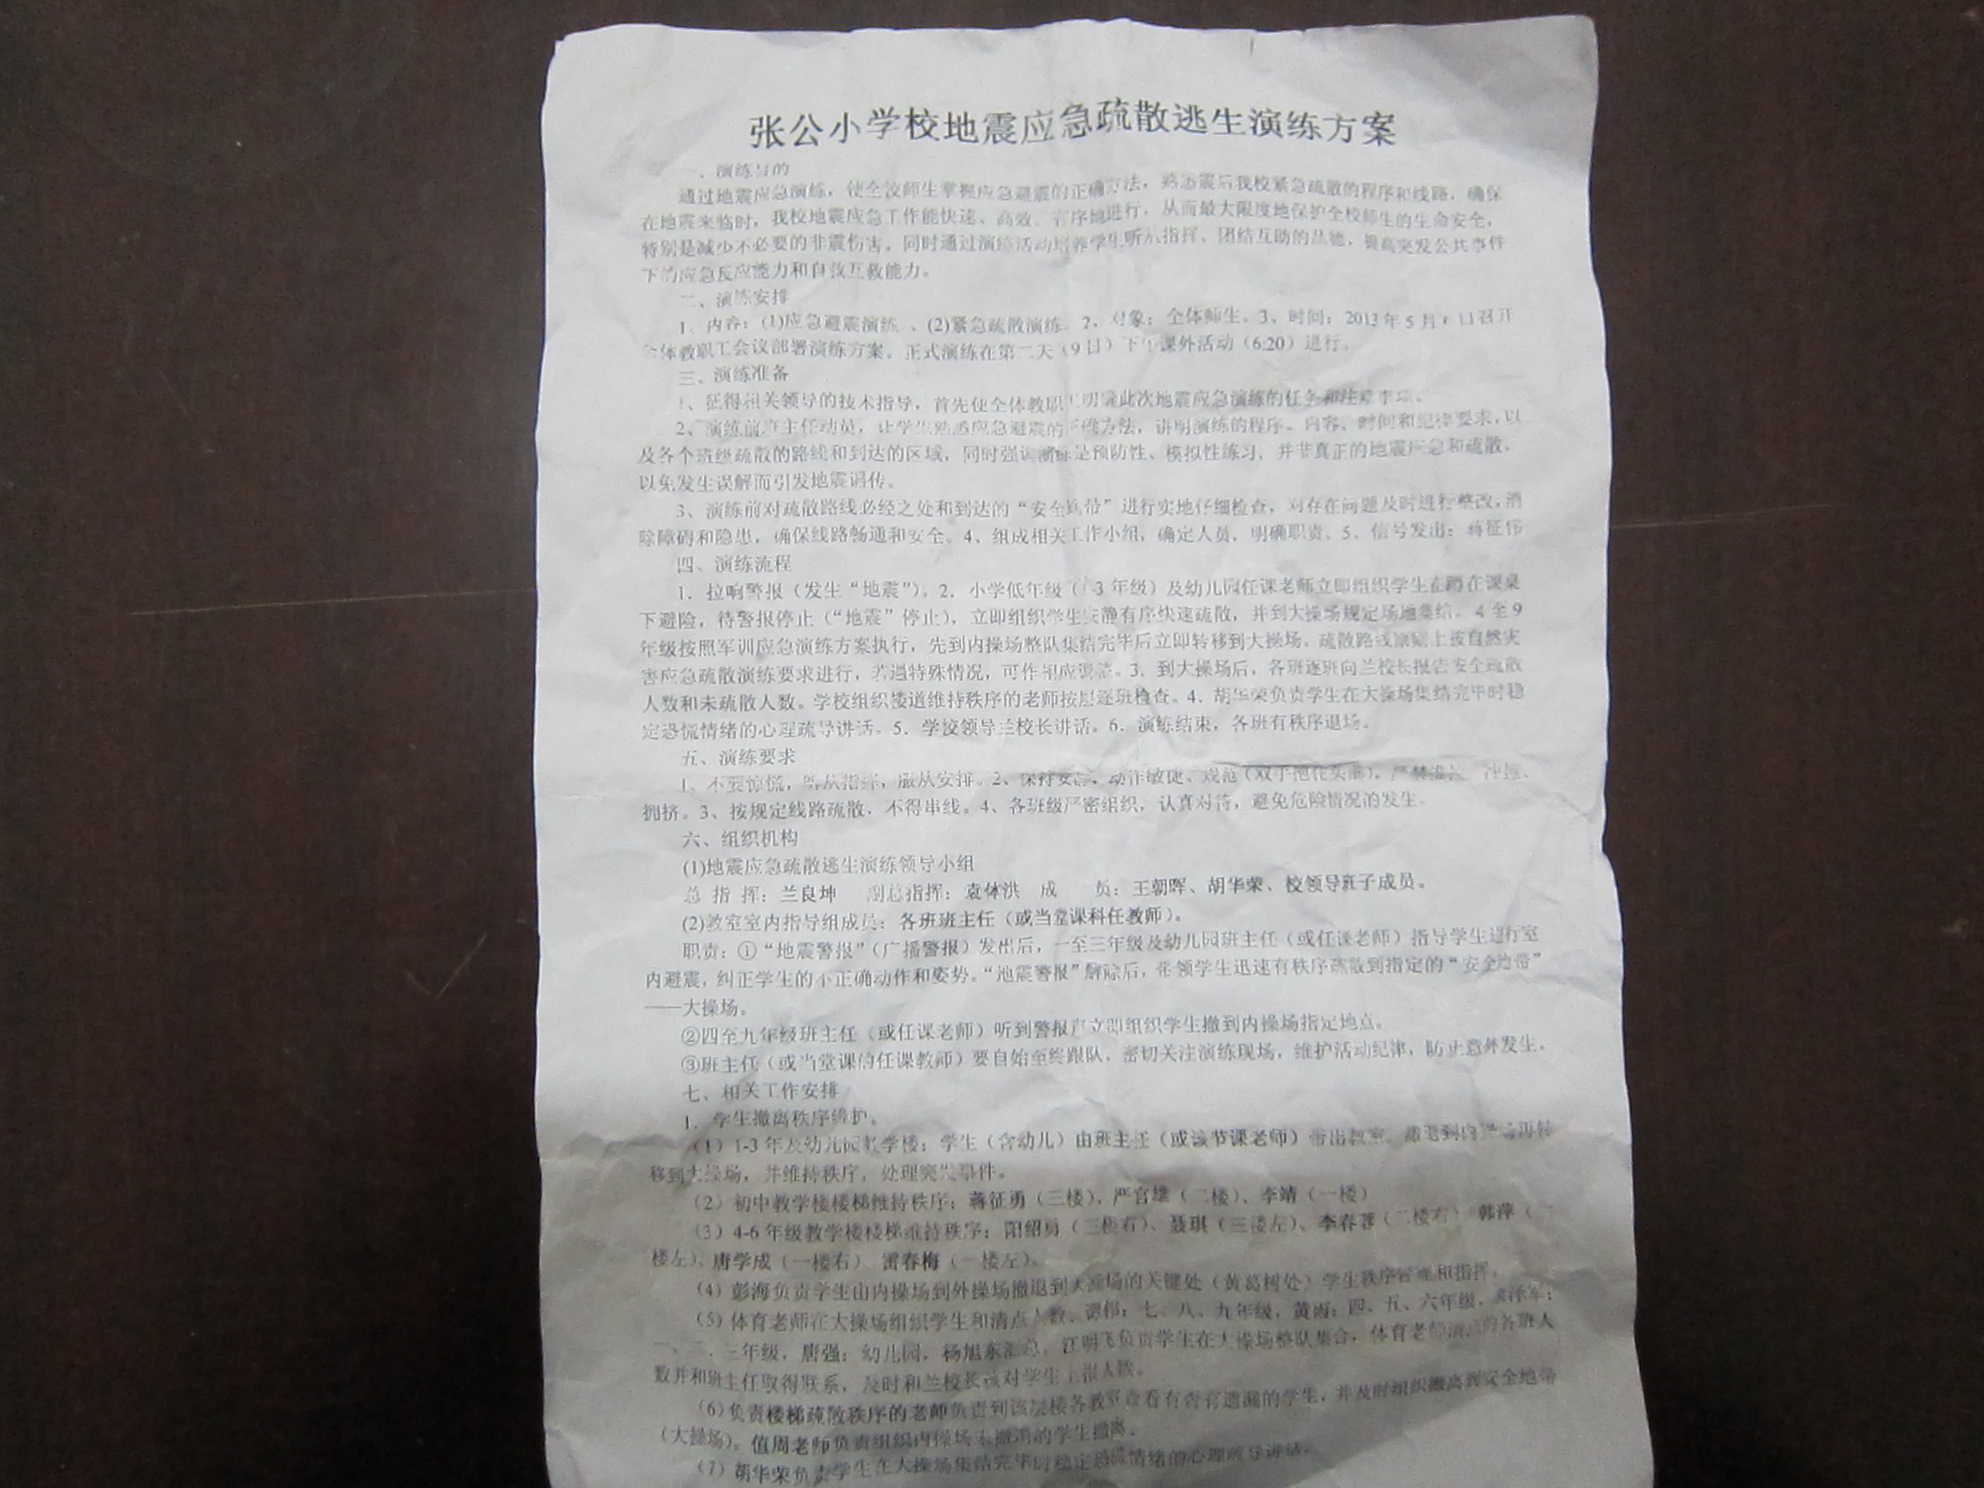 张公小学校地震应急疏散逃生演练方案
一、演练目的
通过地震应急演练，使全校师生掌握应急避震的正确方法，熟悉震后我校紧急疏散的程序和线路，确保
在地震来临时，我校地震应急工作能快速、高效、有序地进行，从而最大限度地保护全校师生的生命安全，
特别是减少不必要的非震伤害。同时通过演练活动培养学生听从指挥、团结互助的品德，提高突发公共事件
下的应急反应能力和自救互救能力。
二、演练安排
1、内容：(1)应急避震演练 、(2)紧急疏散演练。2、对象：全体师生。3、时间：2013年5月 日召开
全体教职工会议部署演练方案。正式演练在第二天（9日）下午课外活动（6:20）进行。
三、演练准备
1、征得相关领导的技术指导，首先使全体教职工明确此次地震应急演练的任务和注意事项。
2、演练前班主任动员，让学生熟悉应急避震的正确方法，讲明演练的程序、内容、时间和纪律要求，以
及各个班级疏散的路线和到达的区域，同时强调演练是预防性、模拟性练习，并非真正的地震应急和疏散，
以免发生误解而引发地震谣传。
3、演练前对疏散路线必经之处和到达的“安全地带”进行实地仔细检查，对存在问题及时进行整改，消
除障碍和隐患，确保线路畅通和安全。4、组成相关工作小组，确定人员，明确职责。5、信号发出：蒋征伟
四、演练流程
1．拉响警报（发生“地震”）。2．小学低年级（1-3年级）及幼儿园任课老师立即组织学生在蹲在课桌
下避险，待警报停止（“地震”停止），立即组织学生安静有序快速疏散，并到大操场规定场地集结。4至9
年级按照军训应急演练方案执行，先到内操场整队集结完毕后立即转移到大操场。疏散路线原则上按自然灾
害应急疏散演练要求进行，若遇特殊情况，可作相应调整。3．到大操场后，各班逐班向兰校长报告安全疏散
人数和未疏散人数。学校组织楼道维持秩序的老师按层逐班检查。4．胡华荣负责学生在大操场集结完毕时稳
定恐慌情绪的心理疏导讲话。5．学校领导兰校长讲话。6．演练结束，各班有秩序退场。
五、演练要求
1、不要惊慌，听从指挥，服从安排。2、保持安静，动作敏捷、规范（双手抱在头部），严禁 冲撞、
拥挤。3、按规定线路疏散，不得串线。4、各班级严密组织，认真对待，避免危险情况的发生。
六、组织机构
(1)地震应急疏散逃生演练领导小组
总 指 挥：兰良坤 副总指挥：袁体洪 成 员：王朝晖、胡华荣、校领导班子成员。
(2)教室室内指导组成员：各班班主任（或当堂课科任教师）。
职责：①“地震警报”（广播警报）发出后，一至三年级及幼儿园班主任（或任课老师）指导学生进行室
内避震，纠正学生的不正确动作和姿势。“地震警报”解除后，带领学生迅速有秩序疏散到指定的“安全地带”
——大操场。
②四至九年级班主任（或任课老师）听到警报应立即组织学生撤到内操场指定地点。
③班主任（或当堂课的任课教师）要自始至终跟队，密切关注演练现场，维护活动纪律，防止意外发生。
七、相关工作安排
1．学生撤离秩序维护。
（1）1-3年及幼儿园教学楼：学生（含幼儿）由班主任（或该节课老师）带出教室，撤到内操场再转
移到大操场，并维持秩序，处理突发事件。
（2）初中教学楼楼梯维持秩序：蒋征勇（三楼），严官雄（二楼）、李靖（一楼）
（3）4-6年级教学楼楼梯维持秩序：阳绍勇（三楼右）、聂琪（三楼左）、李春蓉（二楼右） 韩萍（
楼左）、唐学成（一楼右） 雷春梅（一楼左）。
（4）彭海负责学生由内操场到外操场撤退到大操场的关键处（黄葛树处）学生秩序管理和指挥。
（5）体育老师在大操场组织学生和清点人数。谭伟：七、八、九年级，黄雨：四、五、六年级，
一、二、三年级，唐强：幼儿园，杨旭东汇总，江明飞负责学生在大操场整队集合，体育老师清点的各班人
数并和班主任取得联系，及时和兰校长核对学生上报人数。
（6）负责楼梯疏散秩序的老师负责到该层楼各教室查看有否有遗漏的学生，并及时组织撤离到安全地带
（大操场）。值周老师负责组织内操场未撤离的学生撤离。
（7）胡华荣负责学生在大操场集结完毕时稳定恐慌情绪的心理疏导讲话。